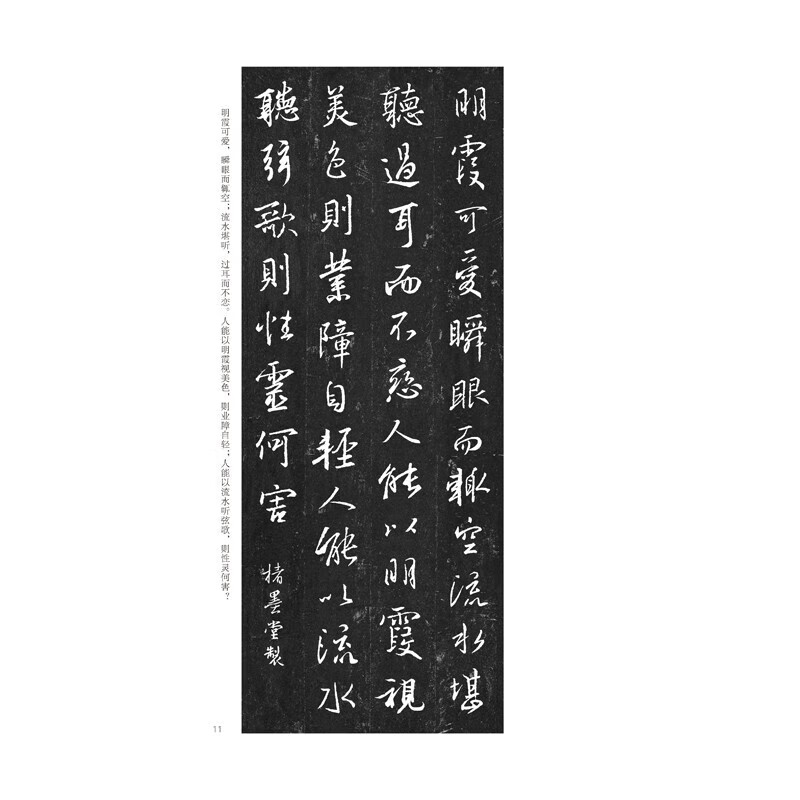 明霞可愛瞬眼而輙空流水堪
聽過耳而不戀人能以明霞視
美色則業障自輕人能以流水
聽弦歌則性靈何害
楮墨堂製
明霞可爱，瞬眼而辄空；流水堪听，过耳而不恋。人能以明霞视美色，则业障自轻；人能以流水听弦歌，则性灵何害？
11